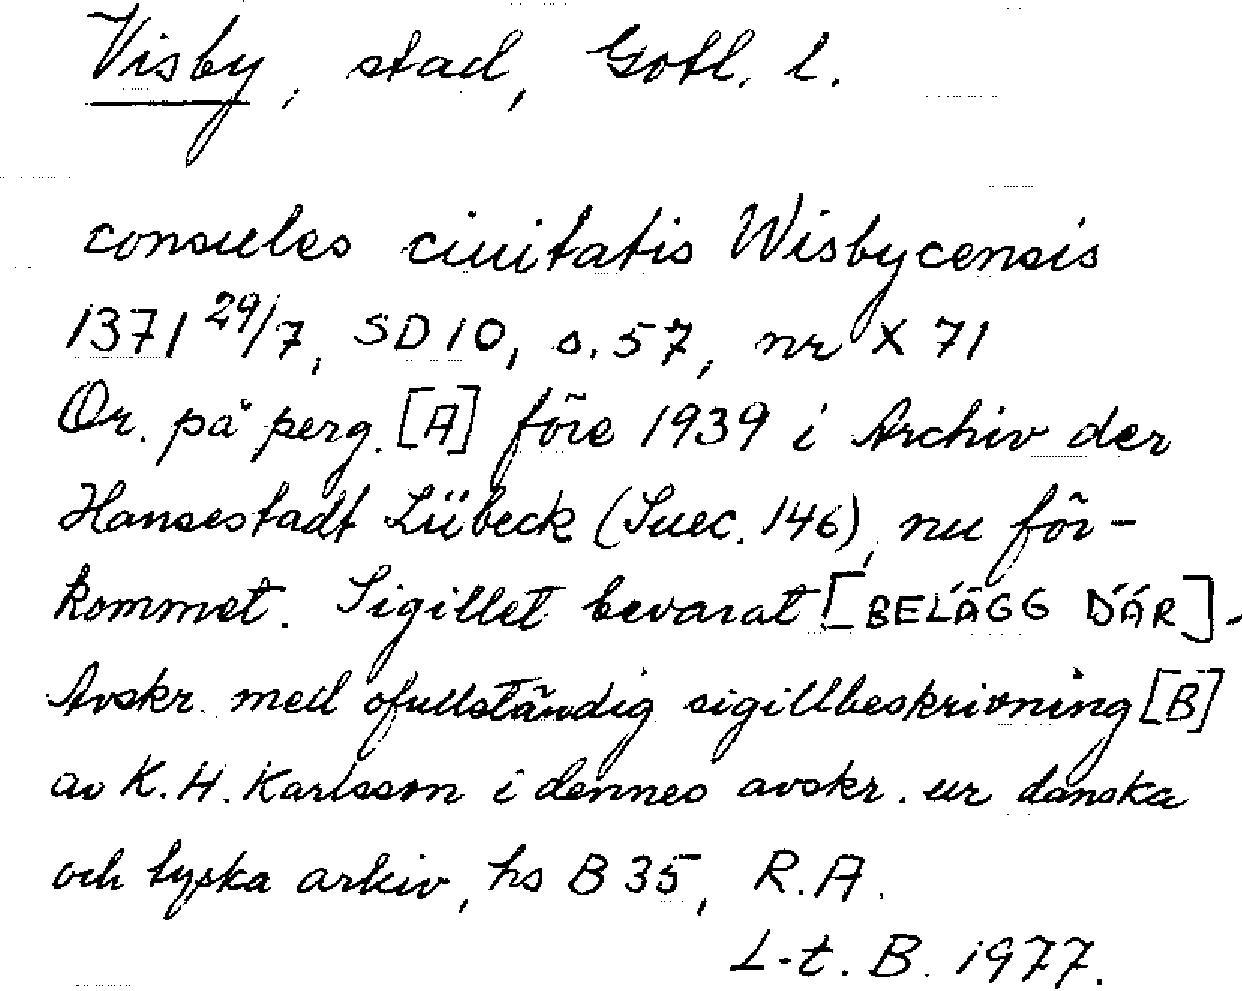 Visby, stad, Gotl. l.
consules ciuitatis Wisbycensis
1371 29/7, SD 10, s. 57, nr X 71
Or. på perg. [A] före 1939 i Archiv der
Hansestadt Lübeck (Suec. 146), nu för-
kommet. Sigillet bevarat [BELÄGG DÄR].
Avskr. med ofullständig sigillbeskrivning [B]
av K. H. Karlsson i dennes avskr. ur danska
och tyska arkiv, hs B 35, R.A.
L-t. B. 1977.